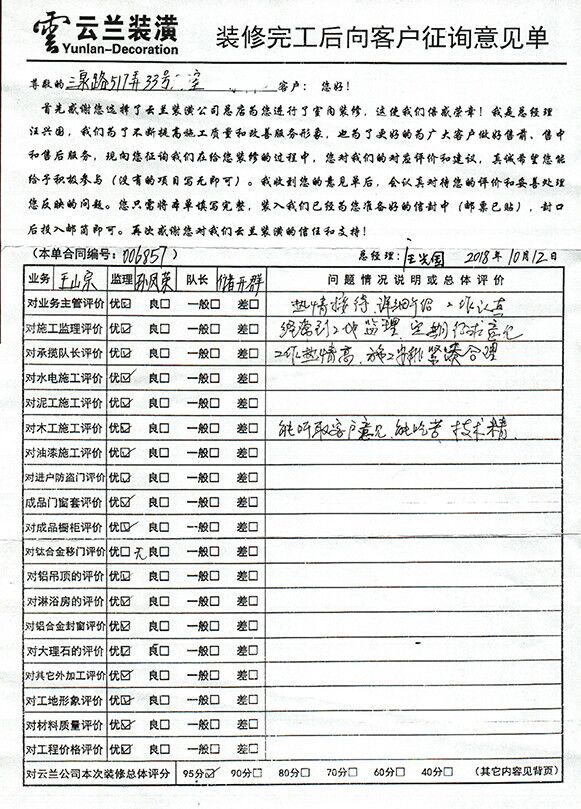 雲 云兰装潢
Yunlan-Decoration
装修完工后向客户征询意见单
尊敬的 三泉路517弄33号 室 客户： 您好！
首先感谢您选择了云兰装潢公司总店为您进行了室内装修，这使我们倍感荣幸！我是总经理
汪兴国，我们为了不断提高施工质量和改善服务形象，也为了更好的为广大客户做好售前、售中
和售后服务，现向您征询我们在给您装修的过程中，您对我们的对应评价和建议，真诚希望您能
给予积极参与（没有的项目写无即可）。我收到您的意见单后，会认真对待您的评价和妥善处理
您反映的问题。您只需将本单填写完整，装入我们已经为您准备好的信封中（邮票已贴），封口
后投入邮筒即可。再次感谢您对我们云兰装潢的信任和支持！
（本单合同编号：006857） 总经理：汪兴国 2018年10月12日
业务 王山宗 监理 孙凤荣 队长 褚开群 问题情况说明或总体评价
对业务主管评价 优☑ 良□ 一般□ 差□ 热情接待、详细介绍 工作认真
对施工监理评价 优☑ 良□ 一般□ 差□ 经常到工地监理，定期征求意见
对承揽队长评价 优☑ 良□ 一般□ 差□ 工作热情高，施工安排紧凑合理
对水电施工评价 优☑ 良□ 一般□ 差□
对泥工施工评价 优☑ 良□ 一般□ 差□
对木工施工评价 优☑ 良□ 一般□ 差□ 能听取客户意见，能吃苦，技术精
对油漆施工评价 优☑ 良□ 一般□ 差□
对进户防盗门评价 优☑ 良□ 一般□ 差□
成品门窗套评价 优☑ 良□ 一般□ 差□
对成品橱柜评价 优☑ 良□ 一般□ 差□
对钛合金移门评价 优□ 无 良□ 一般□ 差□
对铝吊顶的评价 优☑ 良□ 一般□ 差□
对淋浴房的评价 优☑ 良□ 一般□ 差□
对铝合金封窗评价 优☑ 良□ 一般□ 差□
对大理石的评价 优☑ 良□ 一般□ 差□
对其它外加工评价 优☑ 良□ 一般□ 差□
对工地形象评价 优☑ 良□ 一般□ 差□
对材料质量评价 优☑ 良□ 一般□ 差□
对工程价格评价 优☑ 良□ 一般□ 差□
对云兰公司本次装修总体评分 95分☑ 90分□ 80分□ 70分□ 60分□ 40分□ （其它内容见背页）